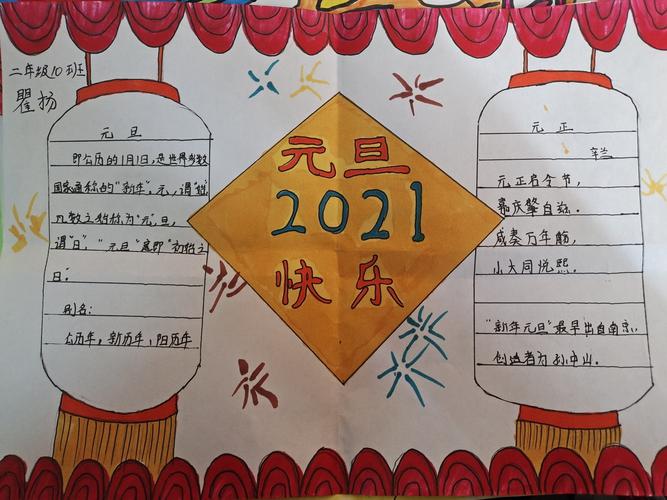 二年级10班
瞿扬
元旦
即公历的1月1日,是世界多数
国家通称的"新年"。元,谓"始",
凡数之始称为"元";旦,
谓"日";"元旦"意即"初始之
日"。
别名:
公历年,新历年,阳历年
元旦
2021
快乐
元正
辛兰
元正启令节,
嘉庆肇自兹。
咸奏万年觞,
小大同悦熙。
"新年元旦"最早出自南京,
创造者为孙中山。